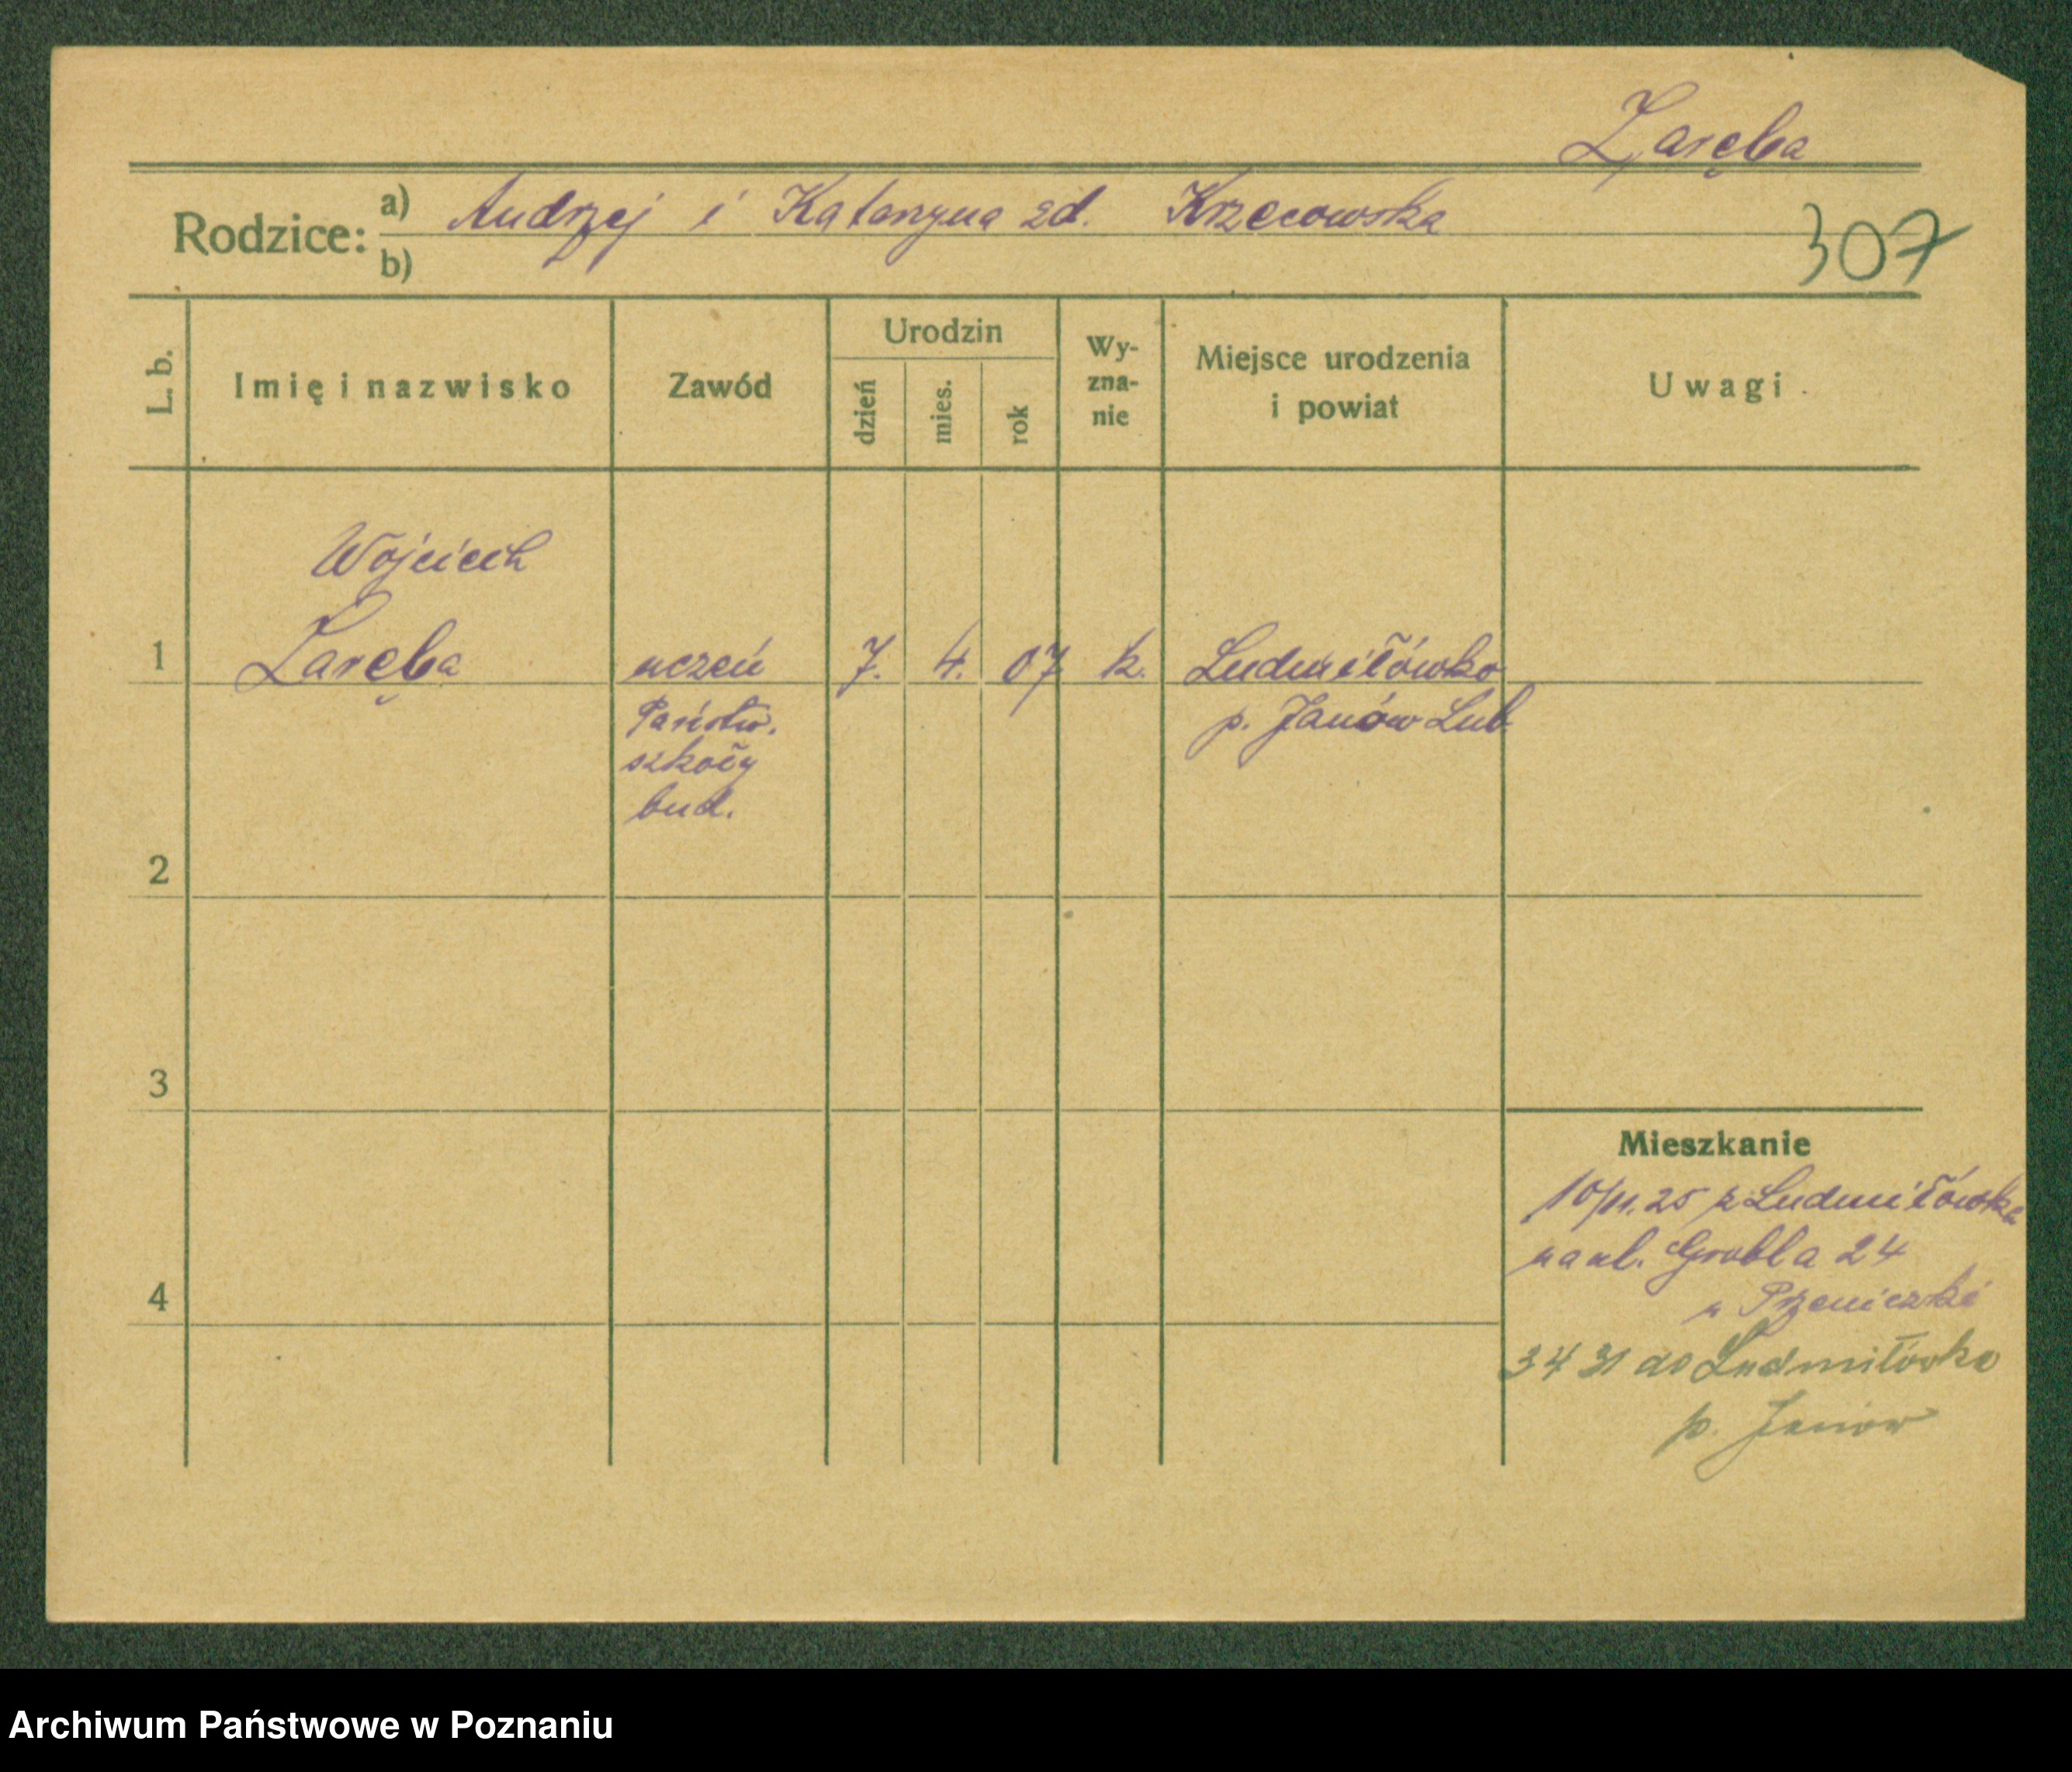 Zaręba
Rodzice: a) Andrzej i Katarzyna zd. Krzecowska
b)
307
L. b.
Imię i nazwisko
Zawód
Urodzin
dzień
mies.
rok
Wy-
zna-
nie
Miejsce urodzenia
i powiat
Uwagi.
Wojciech
1 Zaręba uczeń 7. 4. 07 k. Ludmiłówko
Państw. p. Janów Lub.
szkoły
bud.
2
3
Mieszkanie
10/11.25 z Ludmiłówka
na ul. Grobla 24
4
u
3 4 31 do Ludmiłówko
p. Janów
Archiwum Państwowe w Poznaniu